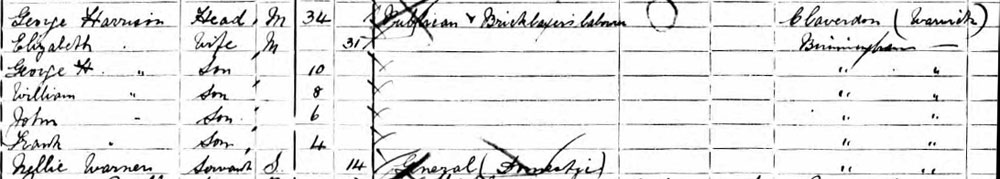 George Harrison Head M 34 Publican & Bricklayers labourer Claverdon (Warwick)
Elizabeth " Wife M 31 Birmingham —
George H. " Son 10 " "
William " Son 8 " "
John " Son 6 " "
Frank " Son 4 " "
Nellie Warner Servant S. 14 General (Domestic) " "